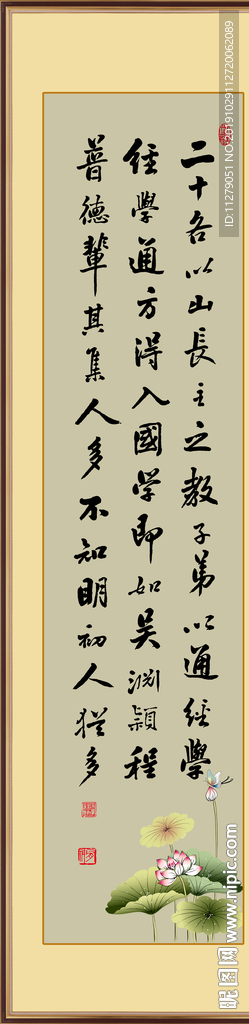 二十各以山長主之教子弟以通經學
經學通方得入國學即如吴淵穎程
普德輩其集人多不知明初人猶多
ID:11279051 NO:20191029112720062089
昵图网 www.nipic.com